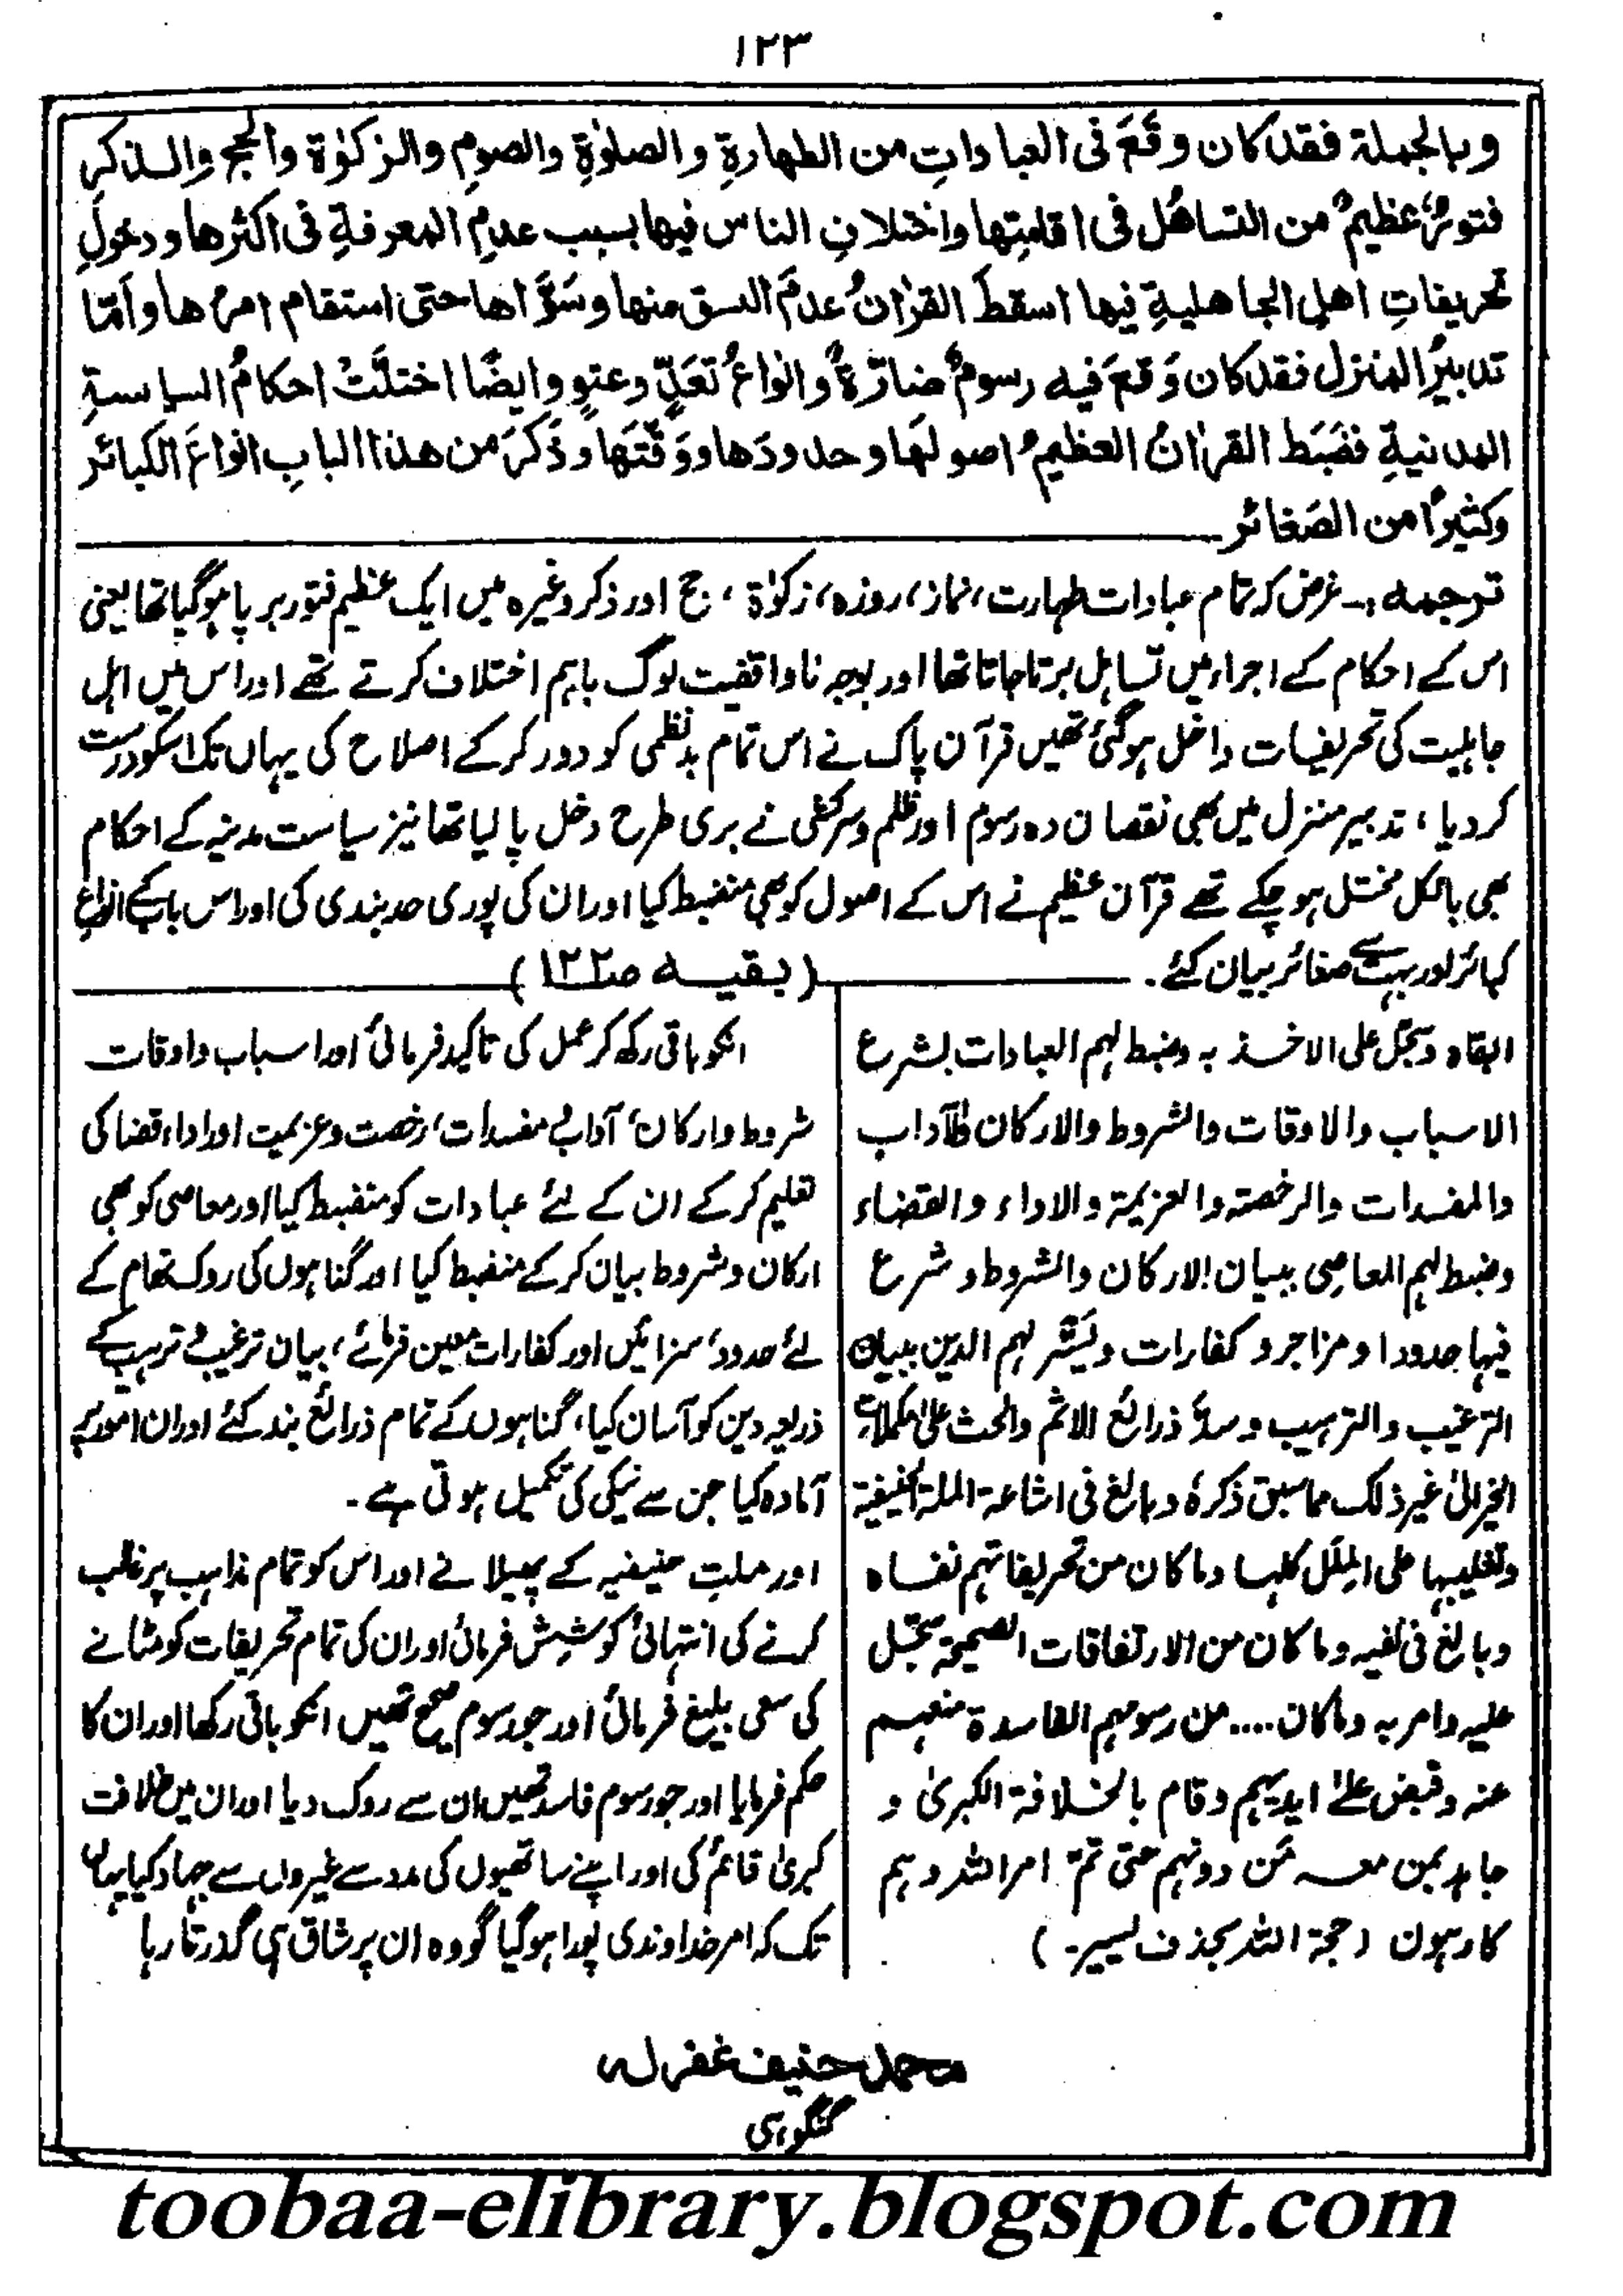 ١٢٣
وبالجملة فقد كان وقَعَ فى العباداتِ من الطهارةِ والصلوٰةِ والصومِ والزكوٰة والحج والـذكرِ
فتورٌ عظيمٌ من التساهُل فى اقامتِها واختلافِ الناس فيها بسبب عدمِ المعرفةِ فى اكثرها ودخولِ
تحريفاتِ اهلِ الجاهليةِ فيها اسقطَ القراٰنُ عدمَ النسق منها وسَوَّاها حتى استقام امرُها واَمّا
تدبيرُ المنزل فقد كان وَقعَ فيه رسومٌ ضارّةٌ وانواعُ تعَدٍّ وعتوٍ وايضًا اختلَّتْ احكامُ السياسةِ
المدنيةِ فضَبَط القراٰنُ العظيمُ اصولَها وحدودَها ووَقَّتَها وذَكَرَ من هذا البابِ انواعَ الكبائر
وكثيرًا من الصَغائر
ترجمہ :۔ غرض کہ تمام عبادات طہارت، نماز، روزہ، زکوٰۃ، حج اور ذکر وغیرہ میں ایک عظیم فتور برپا ہوگیا تھا یعنی
اس کے احکام کے اجراء میں تساہل برتا جاتا تھا اور بوجہ ناواقفیت لوگ باہم اختلاف کرتے تھے اور اس میں اہل
جاہلیت کی تحریفات داخل ہوگئی تھیں قرآن پاک نے اس تمام بدنظمی کو دور کرکے اصلاح کی یہاں تک اسکو درست
کردیا، تدبیر منزل میں بھی نقصان دہ رسوم اور ظلم وسرکشی نے بری طرح دخل پا لیا تھا نیز سیاست مدنیہ کے احکام
بھی بالکل مختل ہوچکے تھے قرآن عظیم نے اس کے اصول کو بھی منضبط کیا اور ان کی پوری حد بندی کی اور اس باب کے انواع
کبائر اور بہت سے صغائر بیان کئے۔
(بقیہ صـ١٢٢)
البقاء وسجل على الاخـذ به وضبط لہم العبادات بشرع
الاسباب والاوقات والشروط والارکان والآداب
والمفسدات والرخصۃ والعزیمۃ والاداء والقضاء
وضبط لہم المعاصی ببیان الارکان والشروط و شرع
فیہا حدودا ومزاجر و کفارات ویَسَّر لہم الدین ببیان
الترغیب والترہیب وسدّ ذرائع الاثم والحث علیٰ مکملات
الخیر الیٰ غیر ذلک مما سبق ذکرہٗ وبالغ فی اشاعۃ الملۃ الحنیفیۃ
وتغلیبہا علی المِلَل کلہا وما کان من تحریفاتہم نفاہ
وبالغ فی نفیہ وما کان من الارتفاقات الصحیحۃ سجّل
علیہ وامر بہ وما کان .... من رسومہم الفاسدۃ منعہم
عنہ وقبض علیٰ ایدیہم وقام بالخلافۃ الکبریٰ و
جاہد بمن معـہ مَن دونہم حتی تمّ امر اللہ وہم
کارہون (حجۃ اللہ بحذف یسیر۔)
انکو باقی رکھ کر عمل کی تاکید فرمائی اور اسباب و اوقات
شروط وارکان، آداب مفسدات، رخصت وعزیمت اور اداء قضا کی
تعلیم کرکے ان کے لئے عبادات کو منضبط کیا اور معاصی کو بھی
ارکان وشروط بیان کرکے منضبط کیا اور گناہوں کی روک تھام کے
لئے حدود، سزائیں اور کفارات معین فرمائے، بیان ترغیب و ترہیب کے
ذریعہ دین کو آسان کیا، گناہوں کے تمام ذرائع بند کئے اور ان امور پر
آمادہ کیا جن سے نیکی کی تکمیل ہوتی ہے۔
اور ملتِ حنیفیہ کے پھیلانے اور اس کو تمام مذاہب پر غالب
کرنے کی انتہائی کوشش فرمائی اور ان کی تمام تحریفات کو مٹانے
کی سعی بلیغ فرمائی اور جو رسوم صحیح تھیں انکو باقی رکھا اور ان کا
حکم فرمایا اور جو رسوم فاسد تھیں ان سے روک دیا اور ان میں خلافت
کبریٰ قائم کی اور اپنے ساتھیوں کی مدد سے غیروں سے جہاد کیا یہاں
تک کہ امر خداوندی پورا ہوگیا گو وہ ان پر شاق ہی گذرتا رہا
محمد حنیف غفرلہ
گنگوہی
toobaa-elibrary.blogspot.com